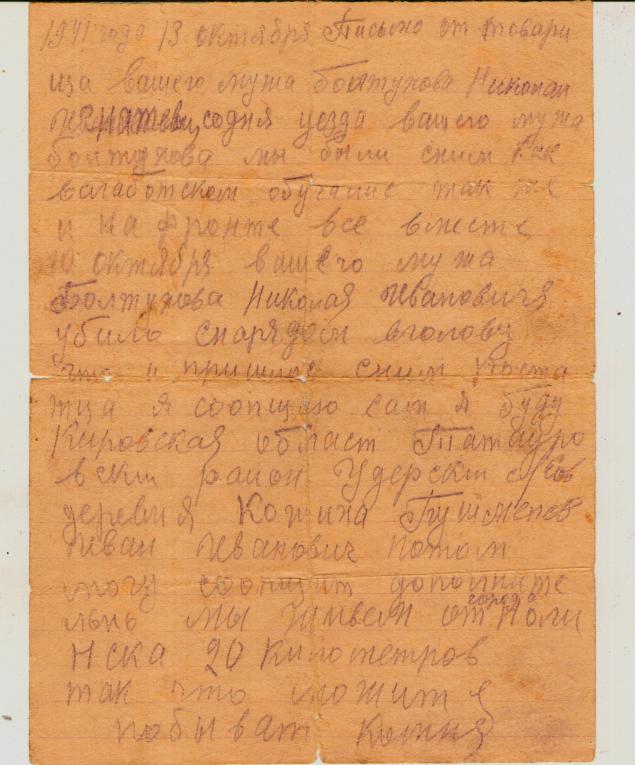 1941 года 13 октября Письмо от товари
ща вашего мужа болтухова Николаи
содня уезда вашего мужа
болтухова мы были сним как
валаботском обучание так же
и на фронте все вместе
10 октября вашего мужа
Болтухова Николая Ивановичя
убило снарядом вголову
что и пришлос сним роста
тца я сообщаю сам я буду
Кировская област Татауро
вскш раион Удерскш с/сов
деревня Кошина
Иван Иванович потом
могу сообщит дополните
льно мы живем от города Ноли
нска 20 километров
так что можите
побыват комня